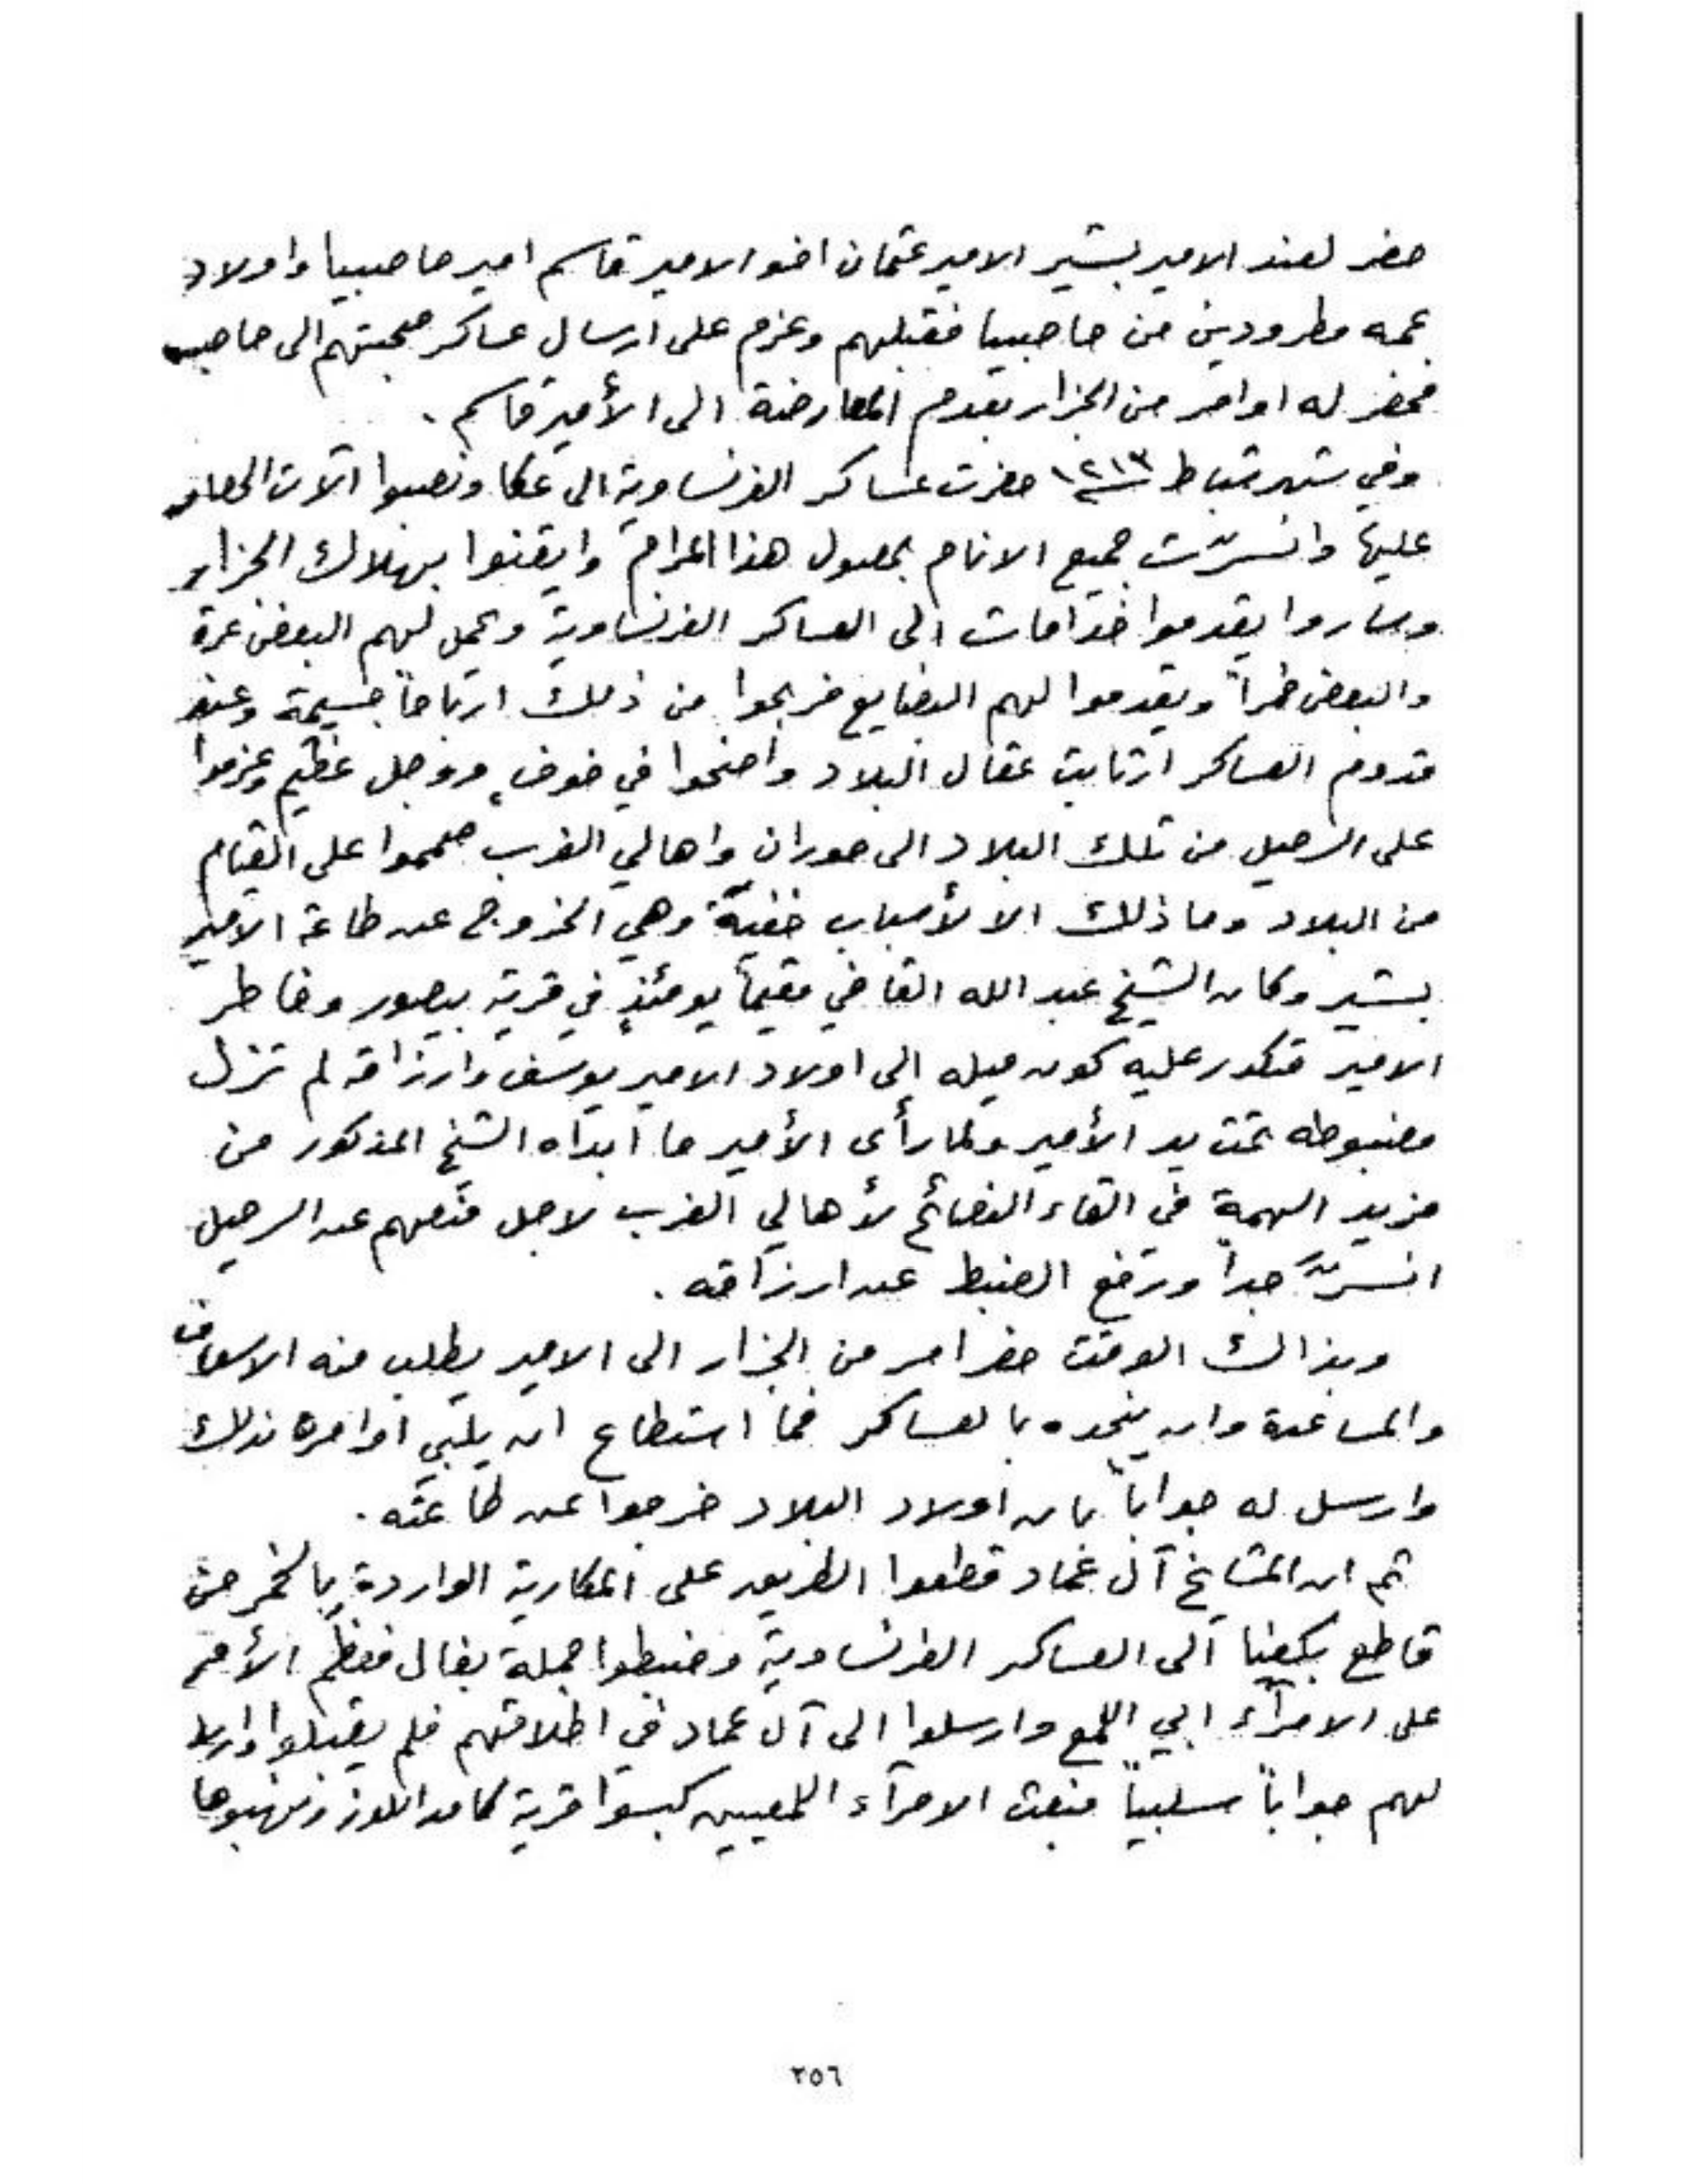 حضر لعند الامير بشير الامير عثمان اخو الامير قاسم امير حاصبيا واولاد
عمه مطرودين من حاصبيا فقبلهم وعزم على ارسال عساكر صحبتهم الى حاصبيا
فحضر له اوامر من الجزار بعدم المعارضة الى الأمير قاسم .
وفي شهر شباط ١٢١٣ حضرت عساكر الفرنساوية الى عكا ونصبوا آلات الحصار
عليها وانسرّت جميع الانام بحصول هذا المرام وايقنوا بهلاك الجزار
وصاروا يقدموا خدامات الى العساكر الفرنساوية وحمل لهم البعض عرق
والبعض خمراً ويقدموا لهم البضايع فربحوا من ذلك ارباحاً جسيمة وعند
قدوم العساكر ارتابت عقال البلاد واضحوا في خوف ووجل عظيم وعزموا
على الرحيل من تلك البلاد الى حوران واهالي الغرب صمموا على القيام
من البلاد وما ذلك الا لأسباب خفيّة وهي الخروج عن طاعة الامير
بشير وكان الشيخ عبد الله القاضي مقيماً يومئذٍ في قرية بيصور وخاطر
الامير متكدر عليه كون ميله الى اولاد الامير يوسف وارزاقه لم تزل
مضبوطه تحت يد الأمير ولما رأى الأمير ما ابداه الشيخ المذكور من
مزيد الهمة في القاء النصائح لأهالي الغرب لاجل منعهم عن الرحيل
انسرّ جداً ورفع الضبط عن ارزاقه .
وبذالك الوقت حضر امر من الجزار الى الامير يطلب منه الاسعاف
والمساعدة وان ينجده بالعساكر فما استطاع ان يلبّي اوامره بذلك
وارسل له جواباً بان اولاد البلاد خرجوا عن طاعته .
ثم ان المشايخ آل عماد قطعوا الطريق على المكارية الواردة بالخمر من
قاطع بكفيا الى العساكر الفرنساوية وضبطوا جملة بغال فعظم الأمر
على الامرآء ابي اللمع وارسلوا الى آل عماد في اطلاقهم فلم يقبلوا وارسلوا
لهم جواباً سلبياً فبعث الامرآء اللمعيين كبسوا قرية كامد اللوز ونهبوها
٢٥٦